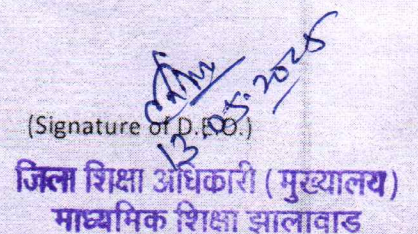 13.05.2025
(Signature of D.E.O.)
जिला शिक्षा अधिकारी (मुख्यालय)
माध्यमिक शिक्षा झालावाड